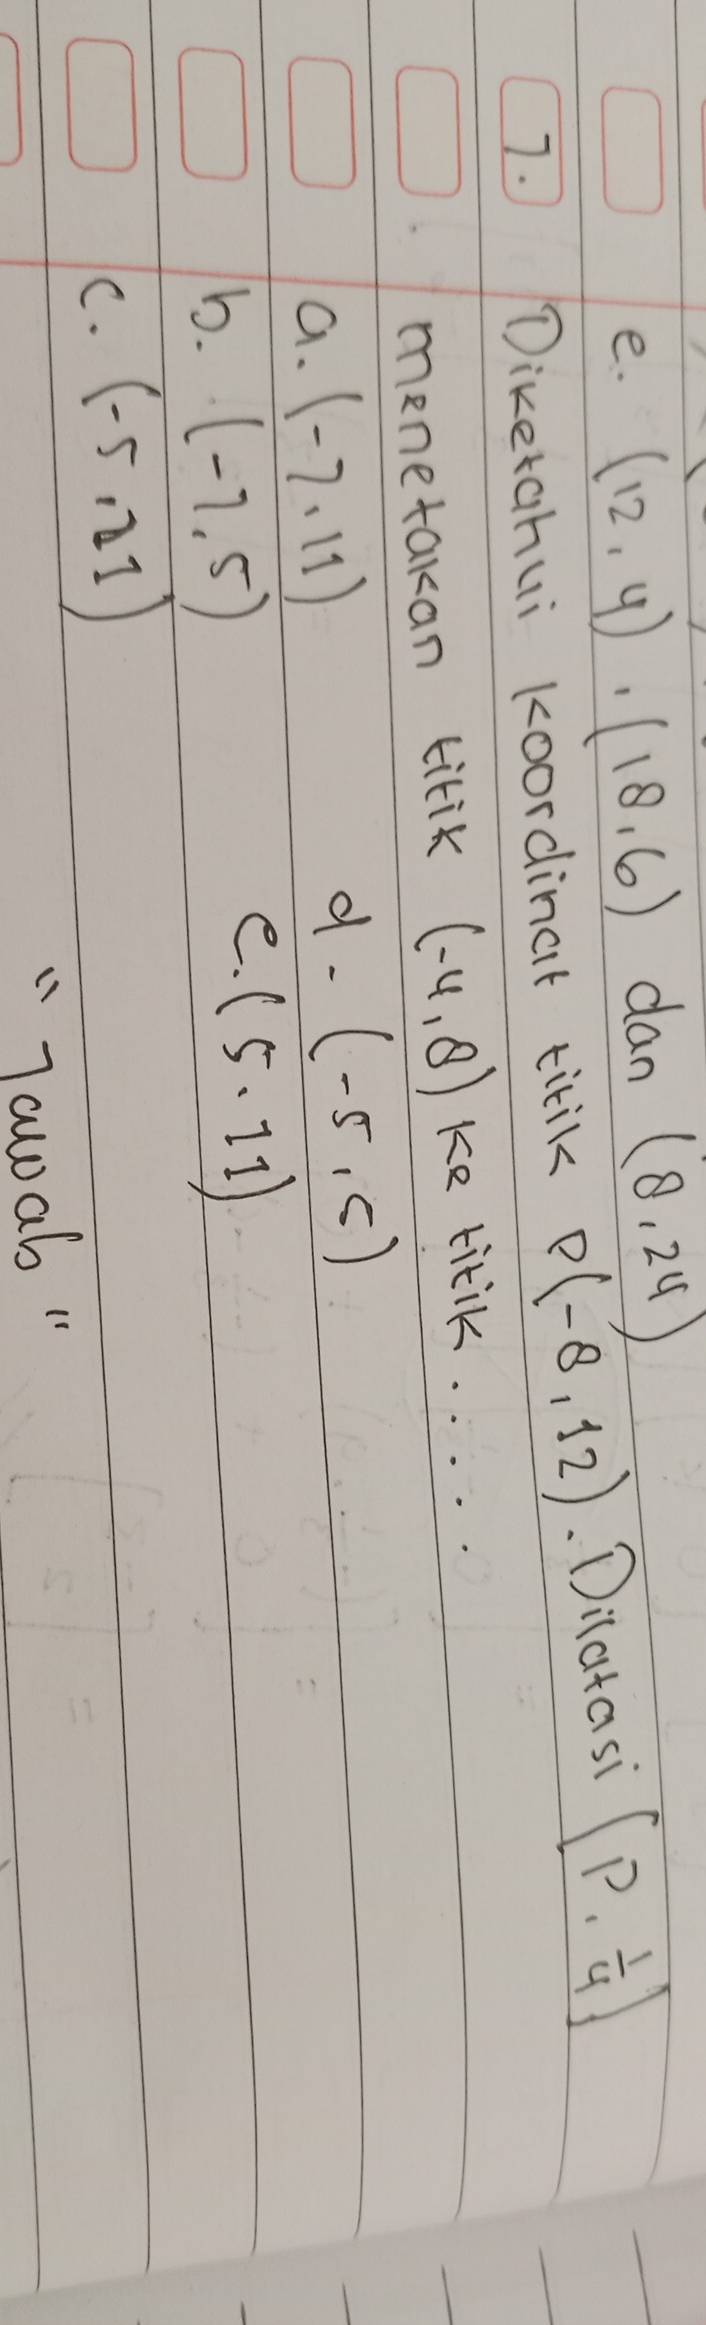 e. (12, 4), (18, 6) dan (8, 24)
7. Diketahui koordinat titik P(-8, 12). Dilatasi [P, 1/4]
menetakan titik (-4, 8) ke titik.....
a. (-7, 11) d. (-5, 5)
b. (-7, 5) e. (5, 11)
c. (-5, 21)
"Jawab"